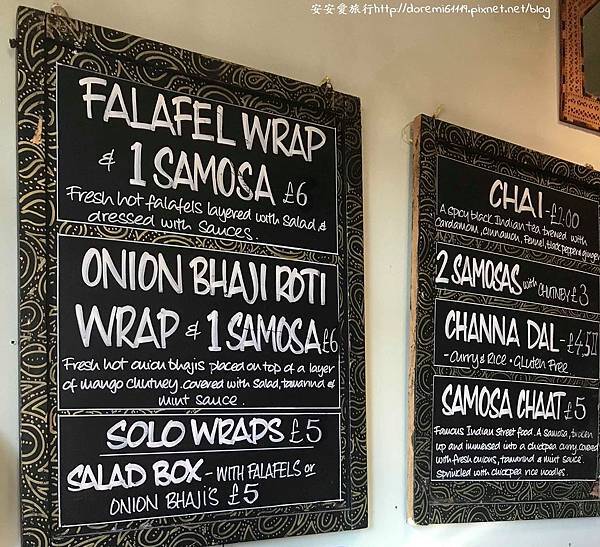 安安愛旅行http://doremi61149.pixnet.net/blog
FALAFEL WRAP
& 1 SAMOSA £6
Fresh hot falafels layered with salad &
dressed with sauces.
ONION BHAJI ROTI
WRAP & 1 SAMOSA £6
Fresh hot onion bhajis placed on top of a layer
of mango chutney. covered with salad, tamarind &
mint sauce.
SOLO WRAPS £5
SALAD BOX - WITH FALAFELS or
ONION BHAJI'S £5
CHAI - £2.00
A spicy black Indian tea brewed with
Cardamom, cinnamon, Fennel, black pepper & ginger
2 SAMOSAS with CHUTNEY £3
CHANNA DAL - £4.50
- CURRY & RICE • GLUTEN FREE
SAMOSA CHAAT £5
Famous Indian Street food. A samosa, broken
up and immersed into a chickpea curry, covered
with fresh onions, tamarind & mint sauce.
sprinkled with chickpea rice noodles.